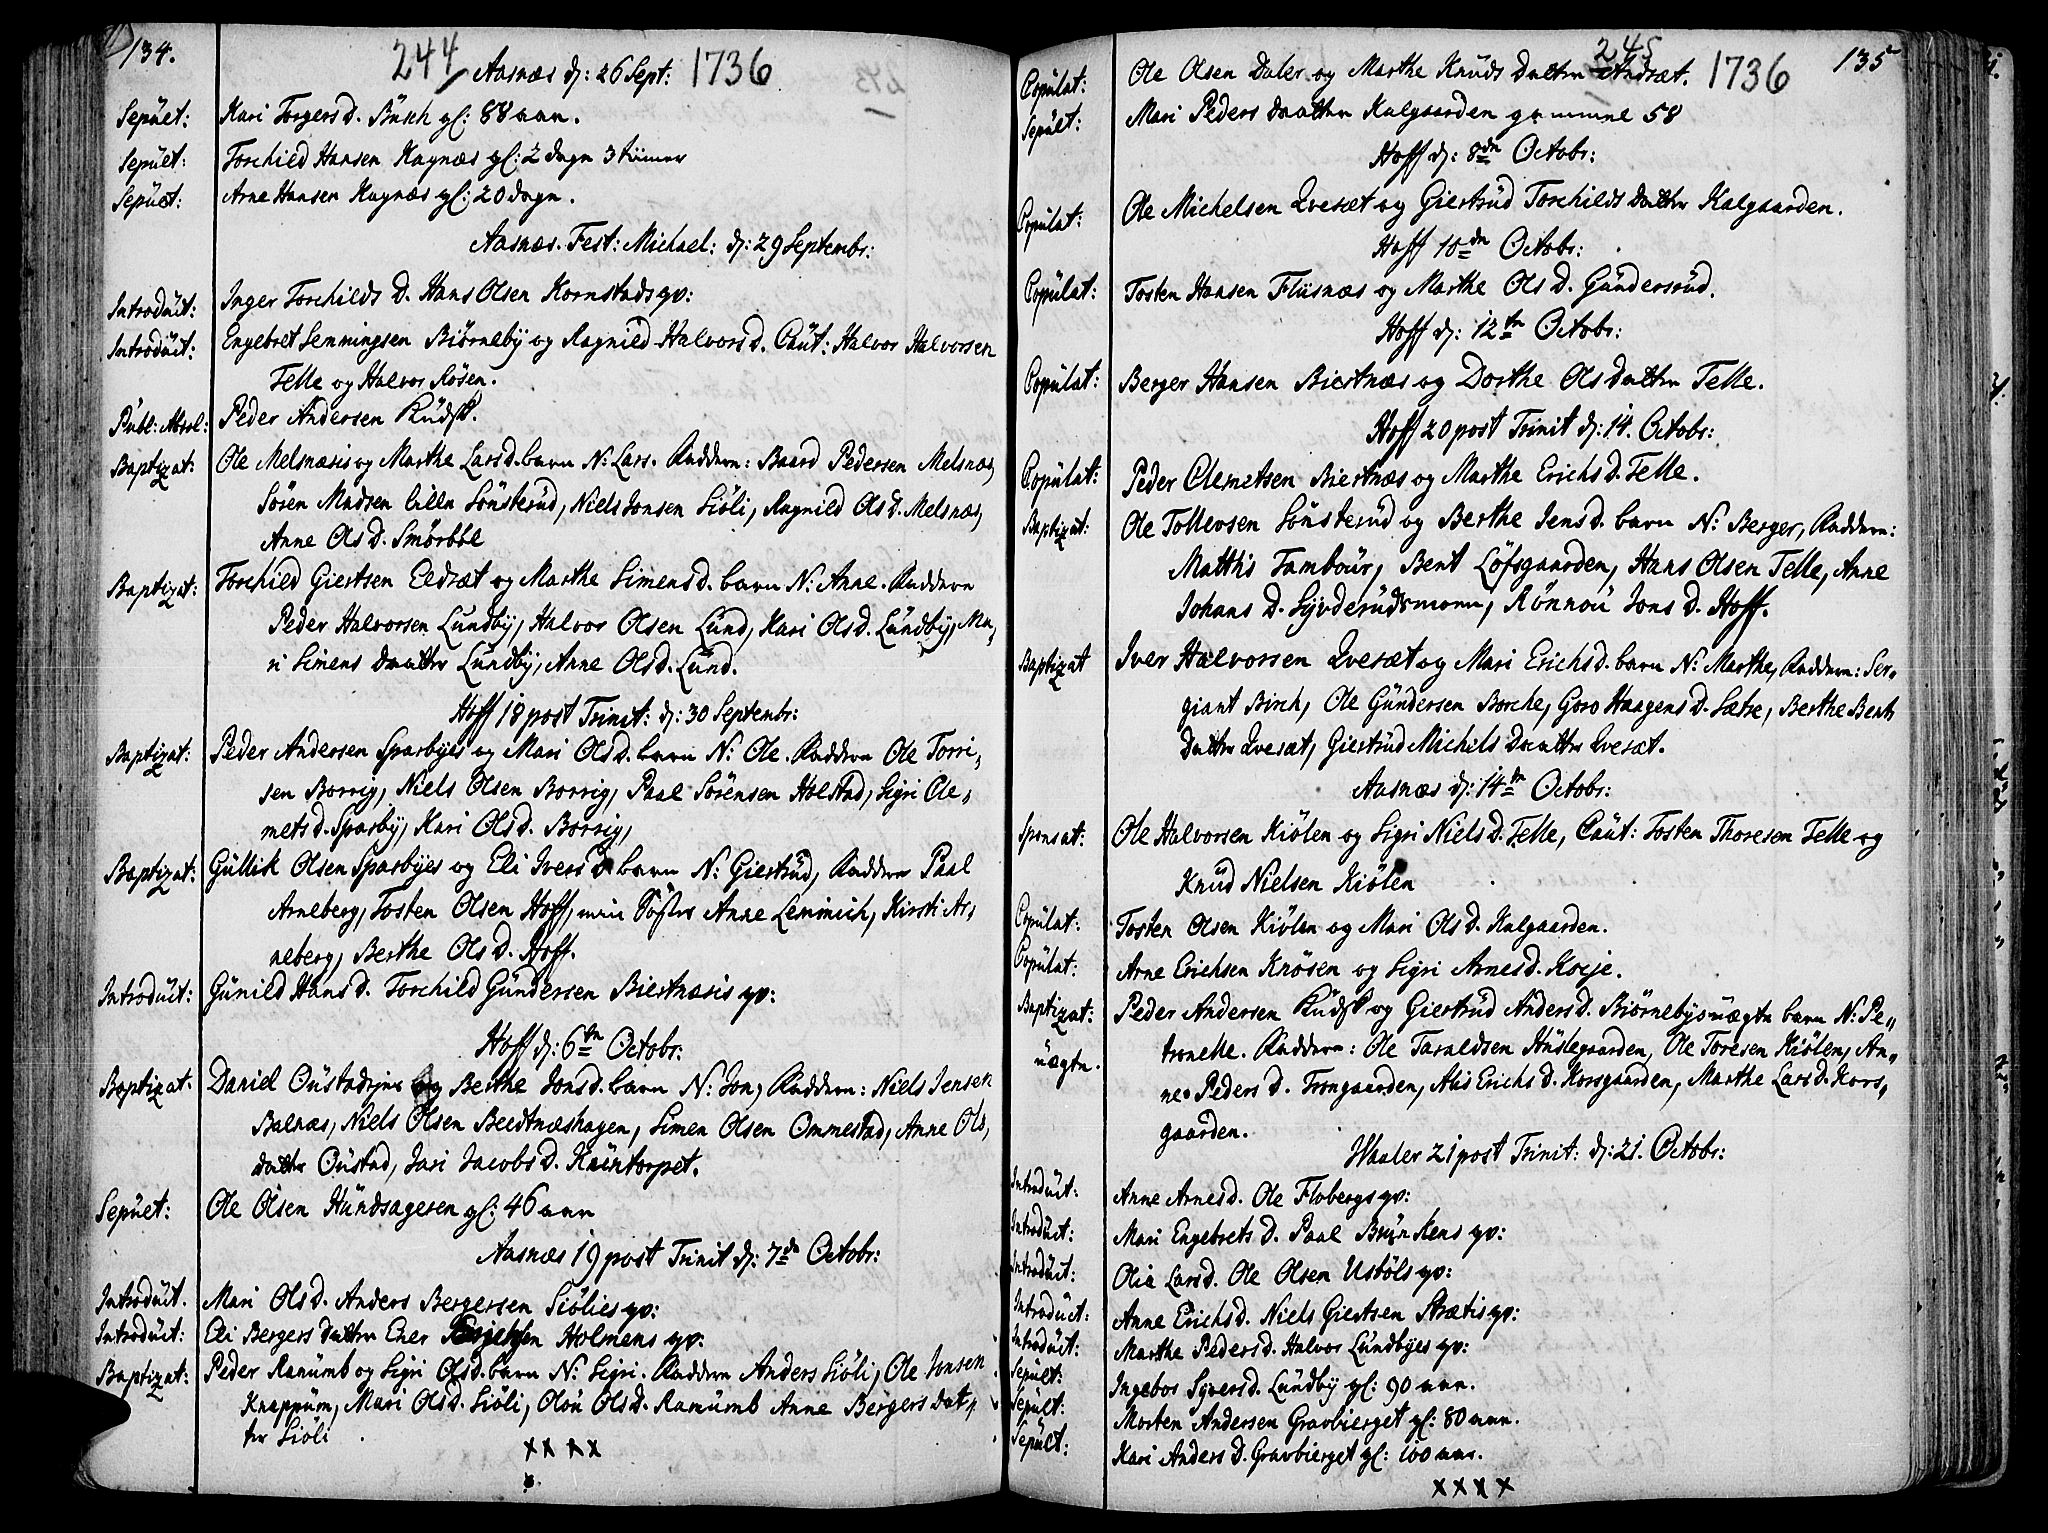 134.
244
Aasnæs d: 26 Sept: 1736
Sepult: Kari Torgers D. gl: 88 aar.
Sepult: Torchild Hansen Kagnæs gl: 2 dage 3 timer
Sepult: Arne Hansen Kagnæs gl: 20 dage.
Aasnæs. Fest: Michael: d: 29 Septembr:
Introduit: Inger Torchilds D. Hans Olsen Kornstads qv:
Introduit: Engebret Semmingsen Biørneby og Ragnild Halvors d. Caut: Halvor Halvorsen
Telle og Halvor Rosen.
Publ: Absol: Peder Andersen Rüdsk.
Baptizat: Ole Melsnæsis og Marthe Lars d. barn N: Lars. Faddere: Baard Pedersen Melsnæs,
Søren Madsen lille Sønsterüd, Niels Jonsen Siöli, Ragnild Ols d. Melsnæs,
Anne Ols d. Smørbøl
Baptizat: Torchild Giertsen Eldsæt og Marthe Simens d. barn N: Anne. Faddere
Peder Halvorsen Lündby, Halvor Olsen Lünd, Kari Ols d. Lündby, Ma,,
ri Simens daatter Lündby, Anne Ols d. Lünd.
Hoff 18 post Trinit: d: 30 Septembr:
Baptizat: Peder Andersen Sparbyes og Mari Ols d. barn N: Ole. Faddere Ole Torri,,
sen Borrig, Niels Olsen Borrig, Paal Sørensen Holstad, Sigri Cle,,
mets d. Sparby, Kari Ols d. Borrig,
Baptizat: Güllik Olsen Sparbyes og Eli Ivers D barn N: Giertrüd, Faddere Paal
Arneberg, Tosten Olsen Hoff, min Søster Anne Lemmich, Kirsti Ar,,
neberg, Berthe Ols D. Hoff.
Introduit: Günild Hans d. Torchild Gündersen Biertnæsis qv:
Hoff d: 6te Octobr:
Baptizat: Daniel og Berthe Jons d. barn N: Jon, Faddere: Niels Jensen
Balnæs, Niels Olsen Beedtnæshagen, Simen Olsen Ommestad, Anne Ols,
datter Oüstad, Jari Jacobs D. Kaintorpet.
Sepult: Ole Olsen Hündsageren gl: 46 aar
Aasnæs 19 post Trinit d: 7de Octobr:
Introduit. Mari Ols d. Anders Bergersen Siölies qv:
Introduit: Eli Bergers datter Ener Holmens qv:
Baptizat: Peder Ramümb og Sigri Ols d. barn N: Sigri. Faddere Anders Siöli, Ole Jonsen
Knappüm, Mari Ols d. Siöli, Oloü Ols d. Ramümb Anne Bergers dat,,
ter Siöli
x x x x
245
1736
135
Copulat: Ole Olsen Daler og Marthe Knüds datter Andsæt.
Sepult: Mari Peders daatter Kalgaarden gammel 58
Hoff d: 8de Octobr:
Copulat: Ole Michelsen Qvesæt og Giertrüd Torchilds datter Kalgaarden.
Hoff 10de Octobr:
Copulat: Tosten Hansen Flisnæs og Marthe Ols D. Gündersrüd.
Hoff d: 12te Octobr:
Copulat: Berger Hansen Biertnæs og Dorthe Ols datter Telle.
Hoff 20 post Trinit d: 14. Octobr:
Copulat: Peder Clemetsen Biertnæs og Marthe Erichs d. Telle.
Baptizat: Ole Tollevsen Sønsterüd og Berthe Jens d. barn N: Berger, Faddere:
Matthis Tamboür, Bent Löfsgaarden, Hans Olsen Telle, Anne
Johans D. Syvderüdsmoen, Rønnoü Jons D. Hoff.
Baptizat Iver Halvorsen Qvesæt og Mari Erichs d. barn N: Marthe, Faddere: Ser,,
giant Birch, Ole Gündersen Borche, Goro Haagens d. Sætre, Berthe Bents
datter Qvesæt, Giertrüd Michils daatter Qvesæt.
Aasnæs d: 14de Octobr:
Sponsat: Ole Halvorsen Kiölen og Sigri Niels D. Telle, Caüt: Tosten Thoresen Telle og
Knüd Nielsen Kiölen
Copulat: Tosten Olsen Kiölen og Mari Ols D. Kalgaarden.
Copulat: Arne Erichsen Knösen og Sigri Arnes d. Koeje.
Baptizat: Peder Andersen Rüdsk og Giertrüd Anders d. Biörnebys uægte barn N: Pe,,
uægte. tronelle. Faddere: Ole Taraldsen Hüslegaarden, Ole Toresen Kiölen, An,,
ne Peders D. Trongaarden, Alis Erichs D. Korsgaarden, Marthe Lars d. Kors,,
gaarden.
Waaler 21 post Trinit: d: 21. Octobr:
Introduit: Anne Arnes d. Ole Flobergs qv:
Introduit: Mari Engebrets D. Paal qv:
Introduit: Olia Lars d. Ole Olsen Ustöls qv:
Introduit: Anne Erichs d. Niels Giertsen Strætis qv:
Introduit: Marthe Peders d. Halvor Lündbyes qv:
Sepult: Ingebor Syvers d. Lündby gl: 90 aar.
Sepult: Morten Andersen Gravbierget gl: 80 aar.
Sepult: Kari Anders D. Gravbierget gl: 100 aar.
x x x x